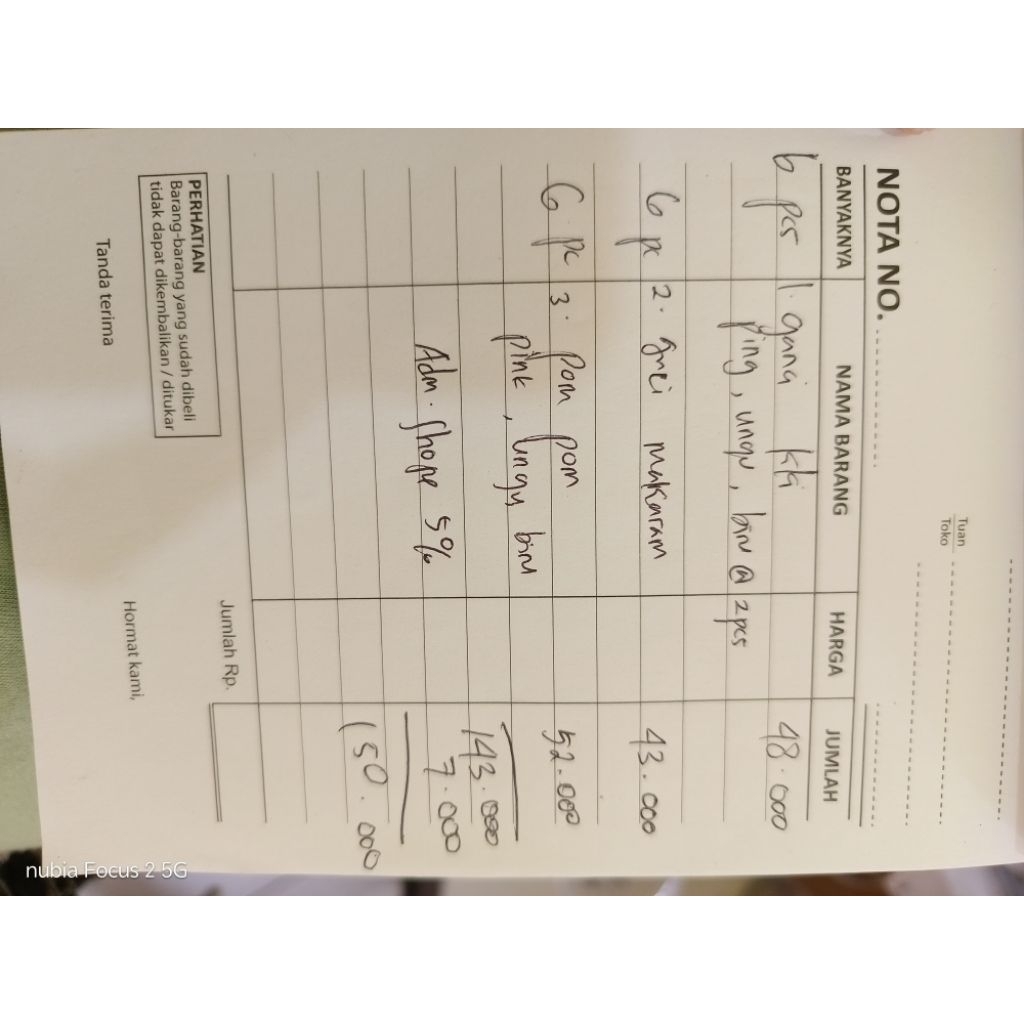 Tuan
Toko
NOTA NO.
BANYAKNYA NAMA BARANG HARGA JUMLAH
6 pcs 1. kki 48.000
ping, ungu, biru @ 2 pcs
6 pc 2. makaram 43.000
6 pc 3. pom pom 52.000
pink, ungu biru
143.000
Adm. Shope 5% 7.000
150.000
Jumlah Rp.
PERHATIAN
Barang-barang yang sudah dibeli
tidak dapat dikembalikan / ditukar
Tanda terima Hormat kami,
nubia Focus 2 5G